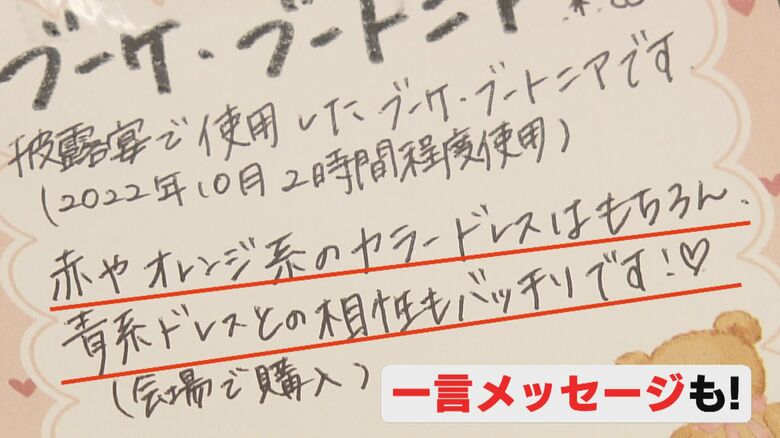 ブーケ・ブートニア
披露宴で使用したブーケ・ブートニアです
(2022年10月 2時間程度使用)
赤やオレンジ系のカラードレスはもちろん、
青系ドレスとの相性もバッチリです!♡
(会場で購入)
一言メッセージも!